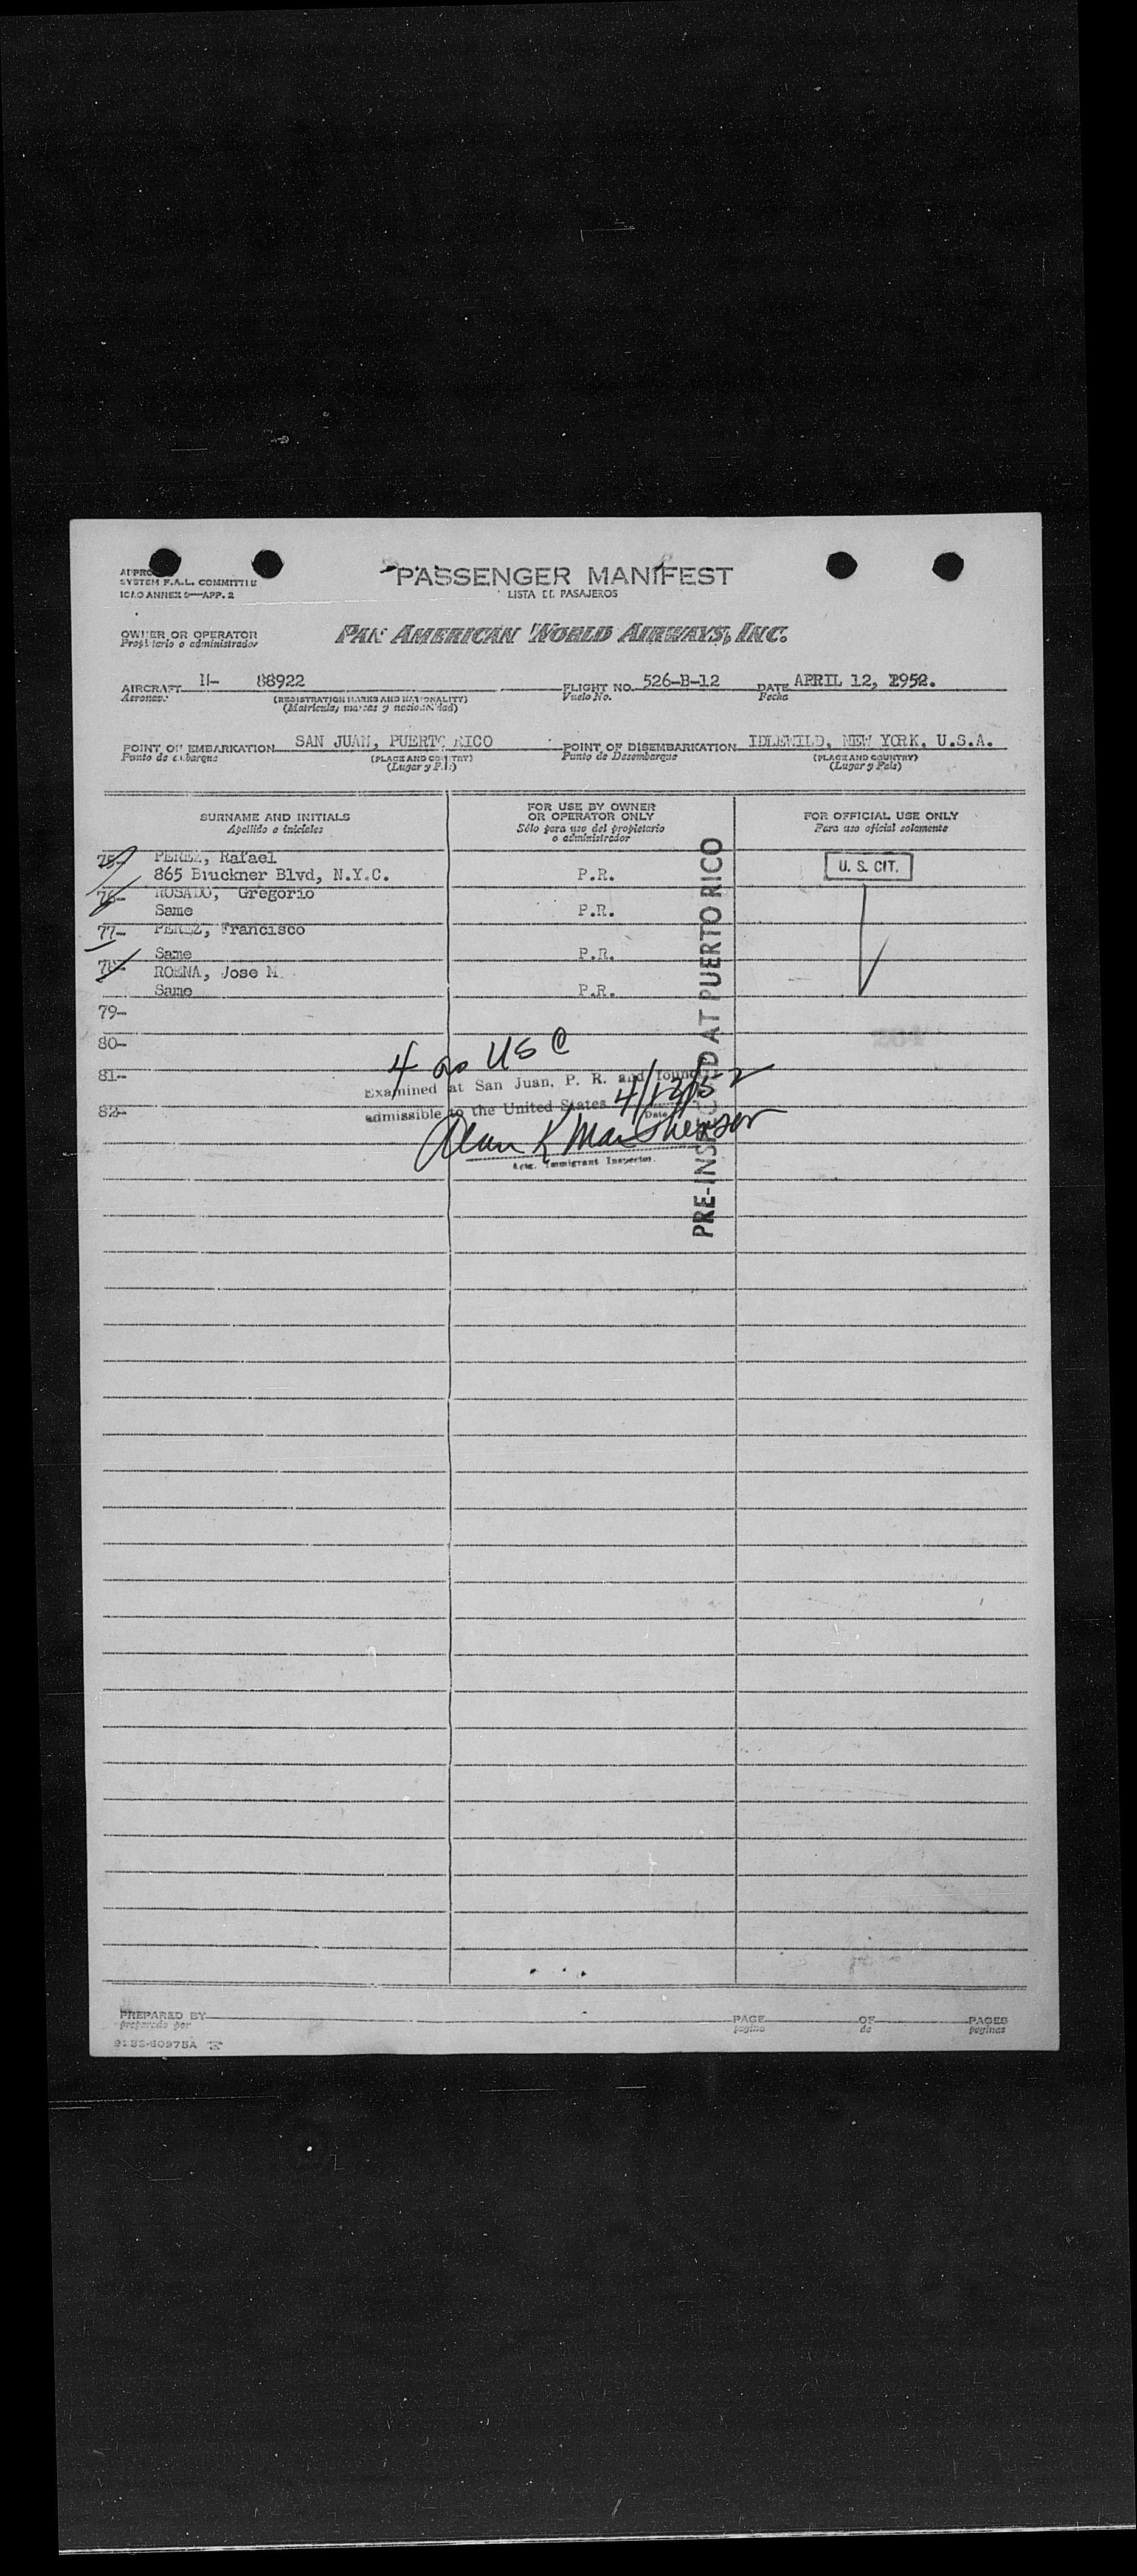 PASSENGER MANIFEST
LISTA DE PASAJEROS
SYSTEM F.A.L. COMMITTEE
ICAO ANNEX 9—APP. 2
OWNER OR OPERATOR
Propietario o administrador
PAN AMERICAN WORLD AIRWAYS, INC.
AIRCRAFT N- 88922 FLIGHT NO. 526-B-12 DATE APRIL 12, 1952.
Aeronave (REGISTRATION MARKS AND NATIONALITY) Vuelo No. Fecha
(Matricula, marcas y nacionalidad)
POINT OF EMBARKATION SAN JUAN, PUERTO RICO POINT OF DISEMBARKATION IDLEWILD, NEW YORK, U.S.A.
Punto de embarque (PLACE AND COUNTRY) Punto de Desembarque (PLACE AND COUNTRY)
(Lugar y País) (Lugar y País)
SURNAME AND INITIALS FOR USE BY OWNER OR OPERATOR ONLY FOR OFFICIAL USE ONLY
Apellido e iniciales Sólo para uso del propietario o administrador Para uso oficial solamente
75- PEREZ, Rafael
865 Bruckner Blvd, N.Y.C. P.R. U. S. CIT.
76- ROSADO, Gregorio
Same P.R.
77- PEREZ, Francisco
Same P.R.
78- ROENA, Jose M
Same P.R.
79-
80-
4 as USC
81-
Examined at San Juan, P. R. and found
82-
admissible to the United States 4/12/52
Date
Actg. Immigrant Inspector.
PRE-INSPECTED AT PUERTO RICO
PREPARED BY PAGE OF PAGES
preparado por pagina de paginas